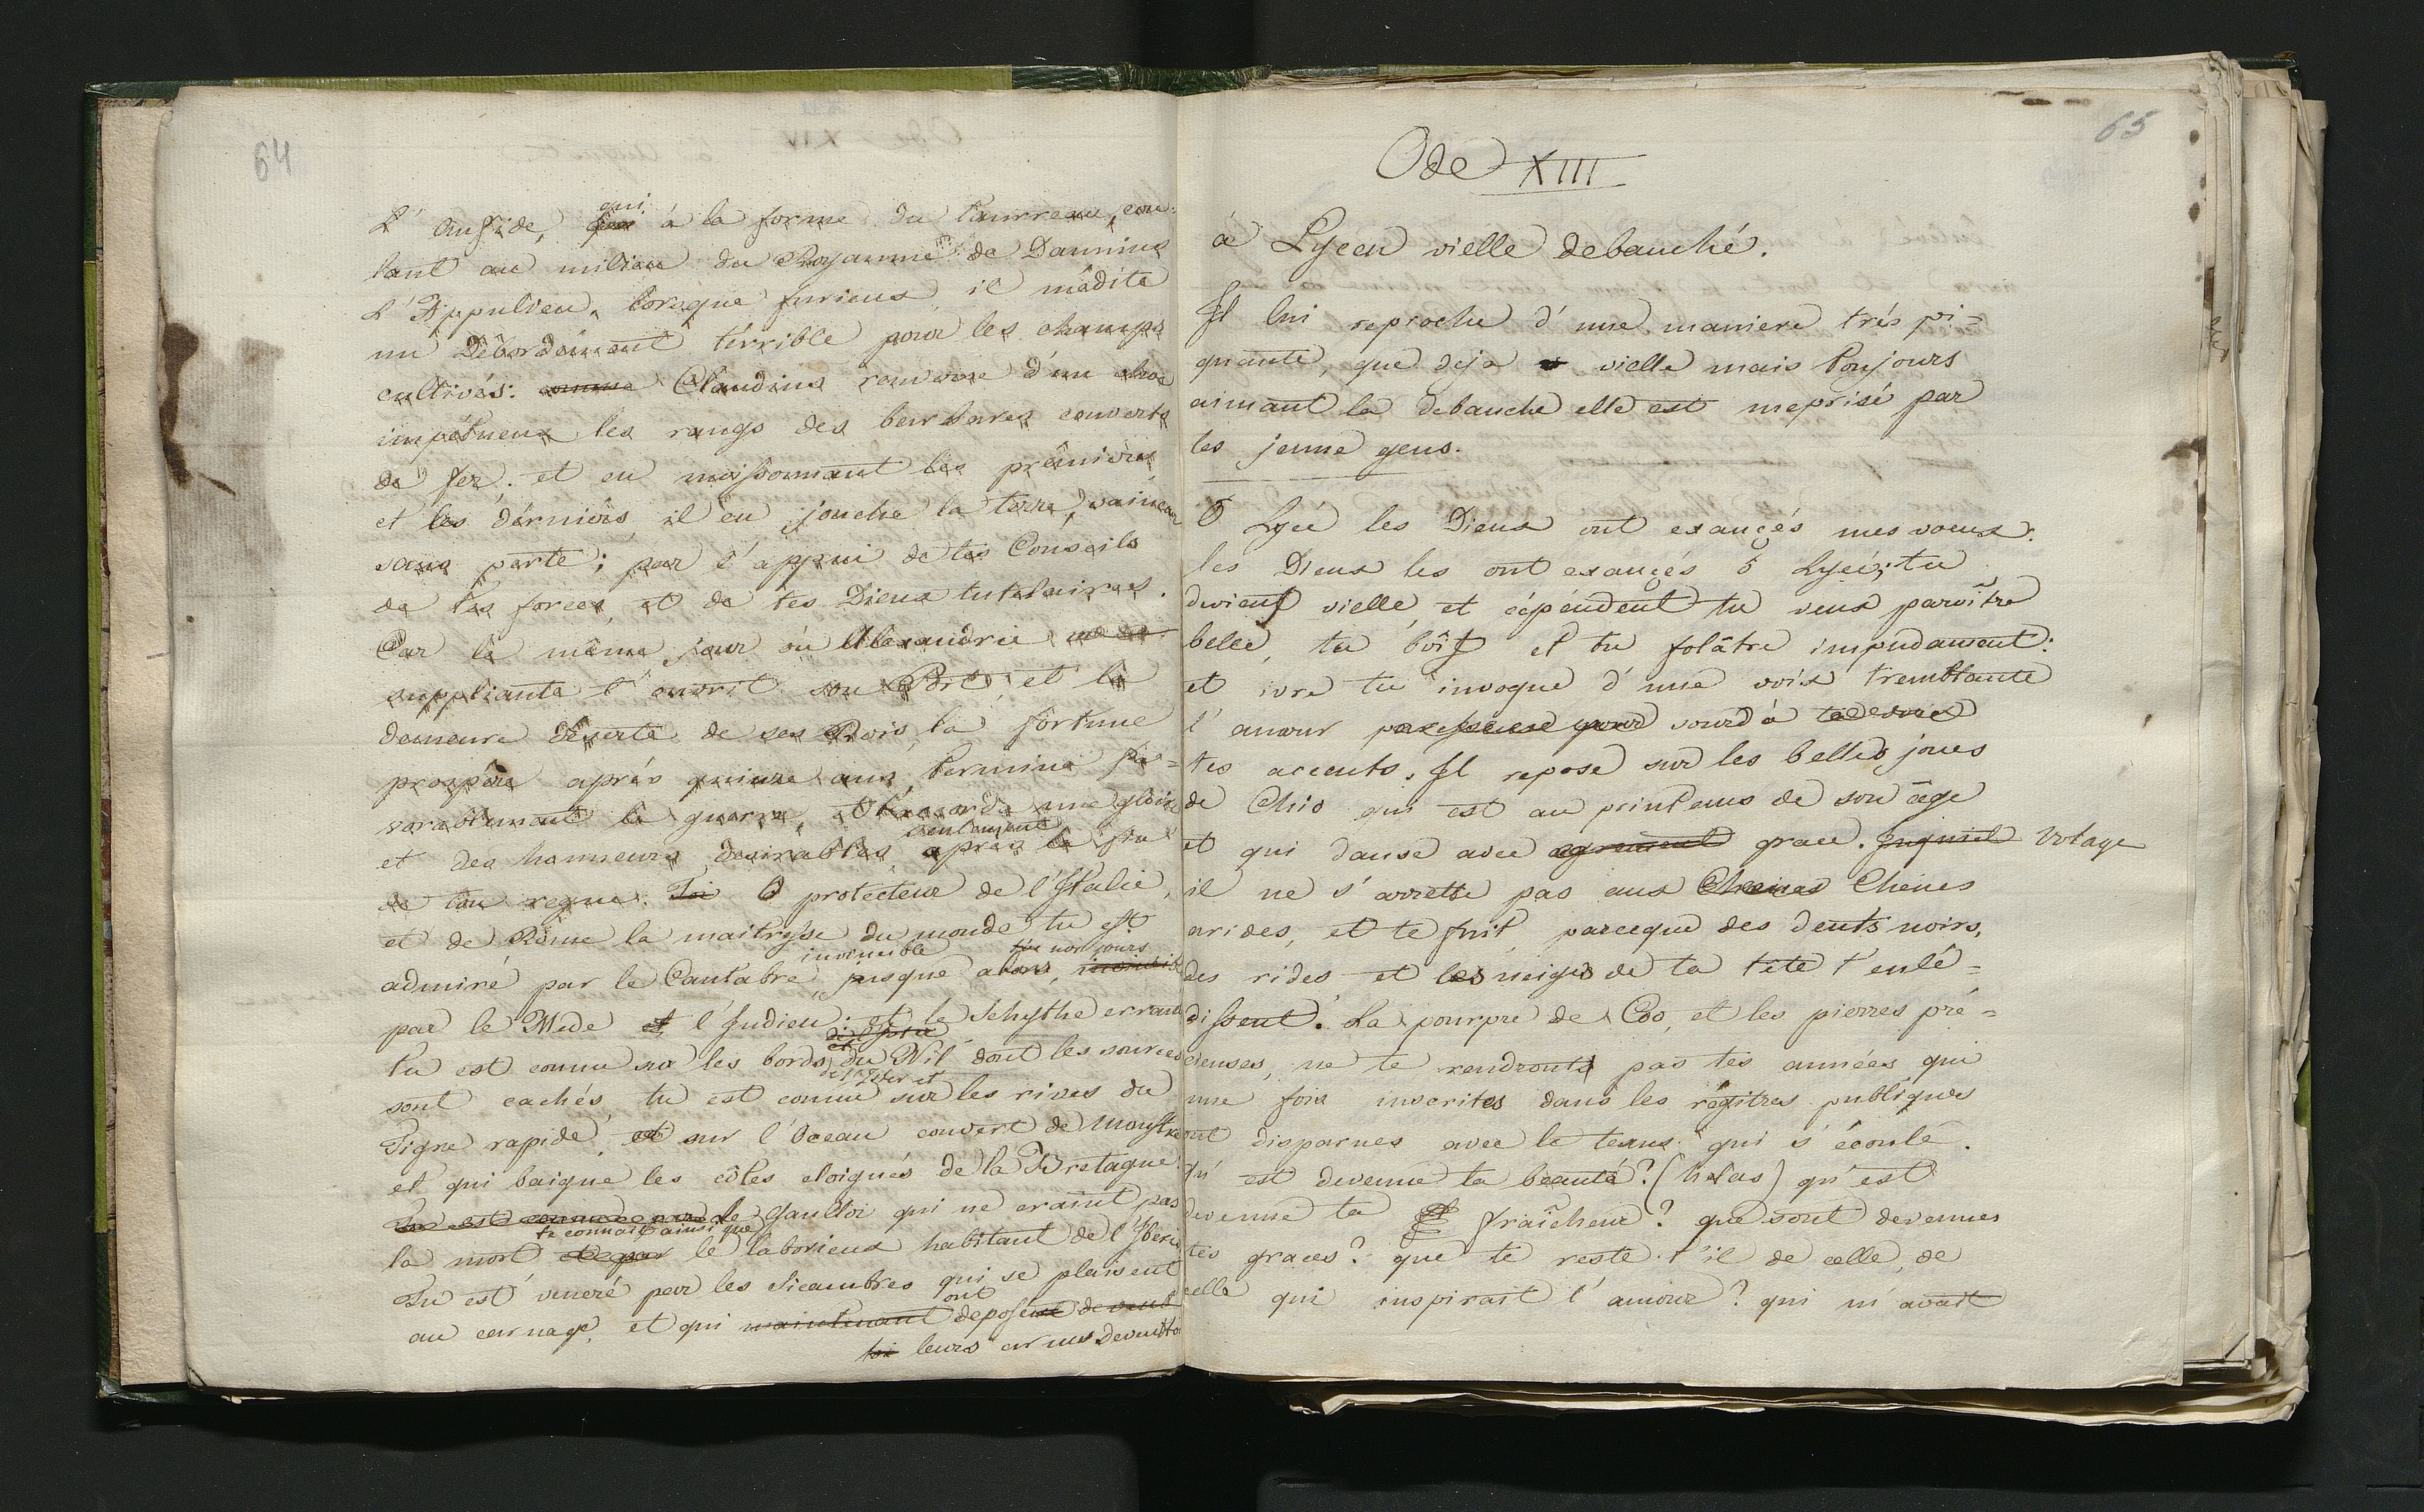 64
L'Aufide, qui à la forme du Taurreau, cou-
lant au milieu du Royaume de Daunius
l'Appulien, lorsque furieux il mèdite
un Débordement térrible pour les champs
cultivés: comme Claudius renverse d'un choc
impétueux les rangs des barbares couverts
de fer. et en moissonnant les prémiers
et les dérniers, il en jonche la terre, vainceur
sans perte; par l'appui de tes Conseils
de tes forces et de tes Dieux tutelaires.
Car le même jour où Alexandrie
suppliante t'ouvrit son Port et la
demeure déserte de ses Rois, la fortune
prospère aprés quinze ans termina fa=
vorablement la guerre, et t'accorda une gloire
seulement
et des honneurs desirables après la fin
de ton regne. Toi O protecteur de l'Italie,
et de Rome la maitresse du monde tu est
invincible nos jours
admiré par le Cantabre, jusque alors, invincible
par le Mede et l'Indien: et le Schythe errant
de l'Ister et
tu est connu sur les bords du Nil dont les sources
sont cachés, tu est connu sur les rives du
Tigre rapide, et sur l'Ocean couvert de Monstre
et qui baigne les côtes eloignés de la Bretagne.
Tu est connu par le Gaulloi qui ne eraint pas
te connait ainsi que
la mort et par le laborieux habitant de l'Iberie
Tu est véneré par les Sicambres qui se plaisent
ont
au carnage, et qui maintenant deposent devant
toi leurs armes devant toi
65
Ode XIII
à Lyceu vielle debauché.
Il lui reproche d'une maniere trés pi=
quante, que deja vielle mais toujours
aimant la debauche elle est meprisé par
les jeune gens.
O Lycé les Dieux ont exauçés mes voeux.
les Dieux les ont exauçés ô Lycé; tu
devient vielle et cépendent tu veux paroître
belle, tu boit et tu folâtre impudament:
et ivre tu invoque d'une voix tremblante
l'amour paresseuse pour sourd à
tes accents. Il repose sur les belles joues
de Chio qui est au printems de son âge
et qui danse avec agrement grace. Inquiet Volage
il ne s'arrette pas aux Chenes Chênes
arides, et te fuit, parceque des dents noirs,
des rides et les neiges de ta tête t'enlé=
dissent. La pourpre de Coo, et les pierres pré=
cieuses, ne te rendront pas tes années qui
une fois inscrites dans les régitres publiques
ont disparues avec le tems qui s'écoulé.
Qu'est devenue ta beauté? (helas) qu'est
devenue ta fraîcheur? que sont devenues
tes graces? que te reste t'il de celle, de
celle qui inspirait l'amour? qui m'avait